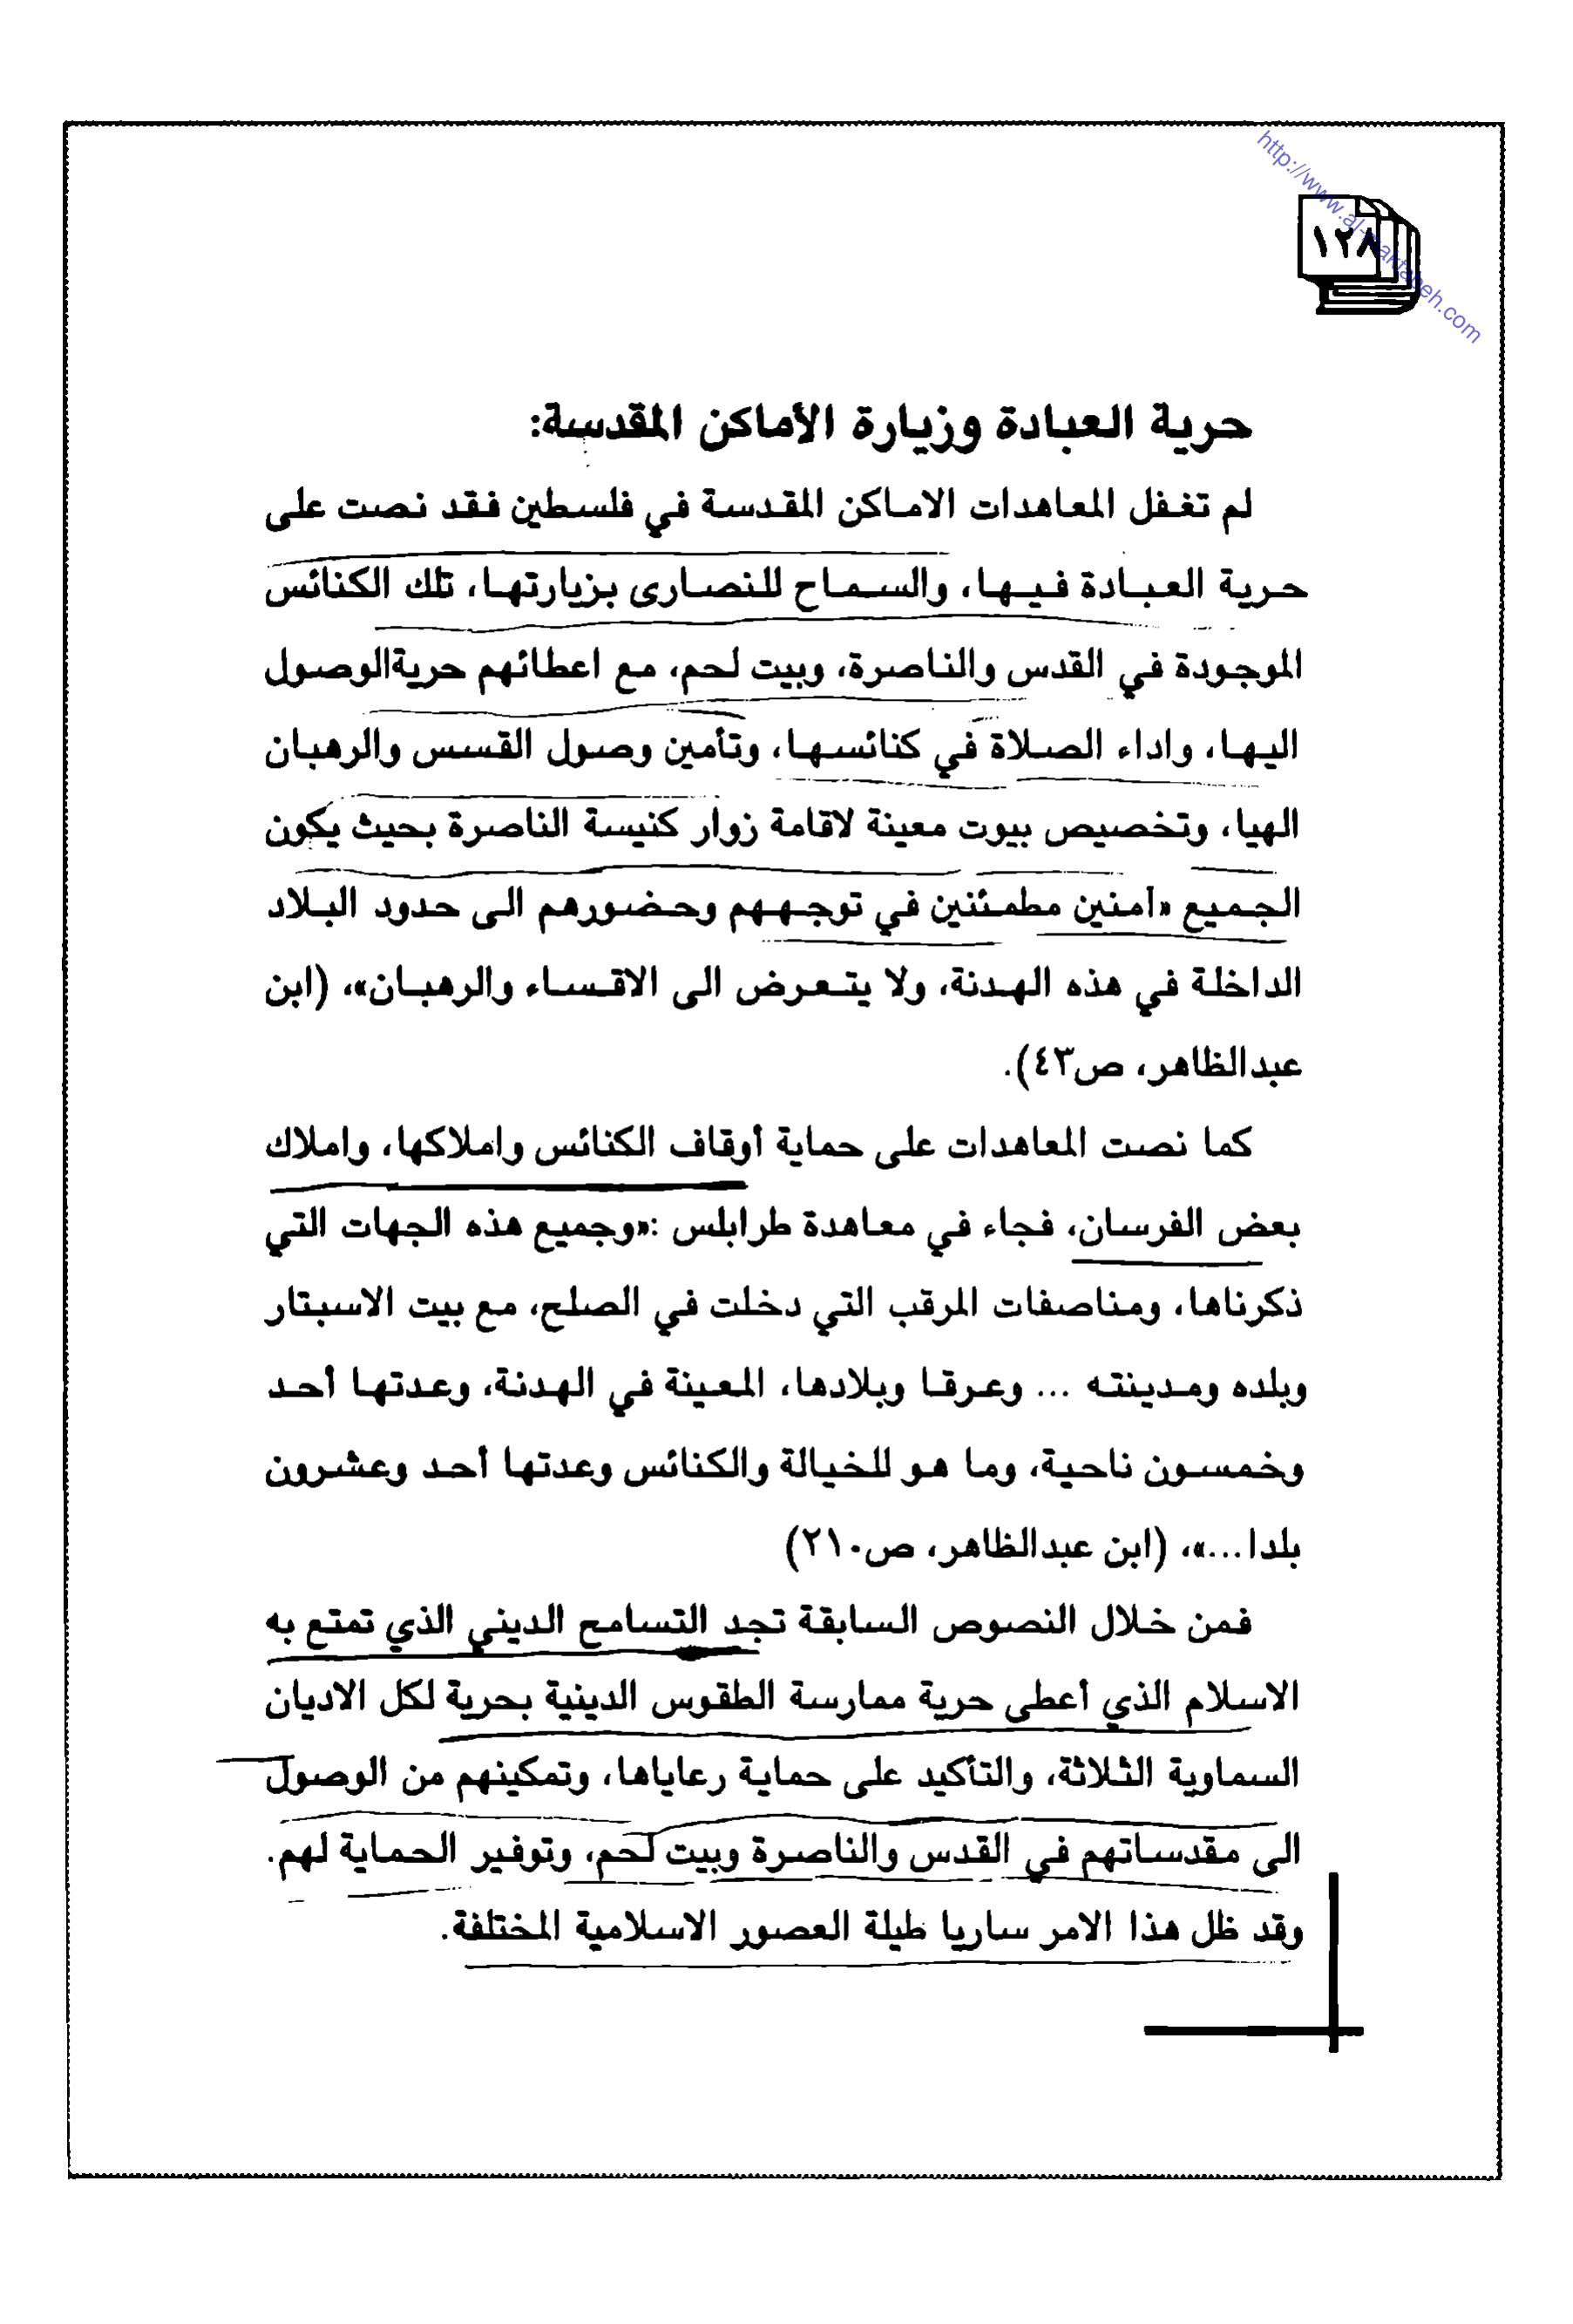 http://www.al-maktabeh.com
١٢٨
حرية العبادة وزيارة الأماكن المقدسة:
لم تغفل المعاهدات الاماكن المقدسة في فلسطين فقد نصت على
حرية العبادة فيها، والسماح للنصارى بزيارتها، تلك الكنائس
الموجودة في القدس والناصرة، وبيت لحم، مع اعطائهم حريةالوصول
اليها، واداء الصلاة في كنائسها، وتأمين وصول القسس والرهبان
الهيا، وتخصيص بيوت معينة لاقامة زوار كنيسة الناصرة بحيث يكون
الجميع «آمنين مطمئنين في توجههم وحضورهم الى حدود البلاد
الداخلة في هذه الهدنة، ولا يتعرض الى الاقساء والرهبان»، (ابن
عبدالظاهر، ص٤٣).
كما نصت المعاهدات على حماية أوقاف الكنائس واملاكها، واملاك
بعض الفرسان، فجاء في معاهدة طرابلس :«وجميع هذه الجهات التي
ذكرناها، ومناصفات المرقب التي دخلت في الصلح، مع بيت الاسبتار
وبلده ومدينته ... وعرقا وبلادها، المعينة في الهدنة، وعدتها أحد
وخمسون ناحية، وما هو للخيالة والكنائس وعدتها أحد وعشرون
بلدا...»، (ابن عبدالظاهر، ص٢١٠)
فمن خلال النصوص السابقة تجد التسامح الديني الذي تمتع به
الاسلام الذي أعطى حرية ممارسة الطقوس الدينية بحرية لكل الاديان
السماوية الثلاثة، والتأكيد على حماية رعاياها، وتمكينهم من الوصول
الى مقدساتهم في القدس والناصرة وبيت لحم، وتوفير الحماية لهم.
وقد ظل هذا الامر ساريا طيلة العصور الاسلامية المختلفة.